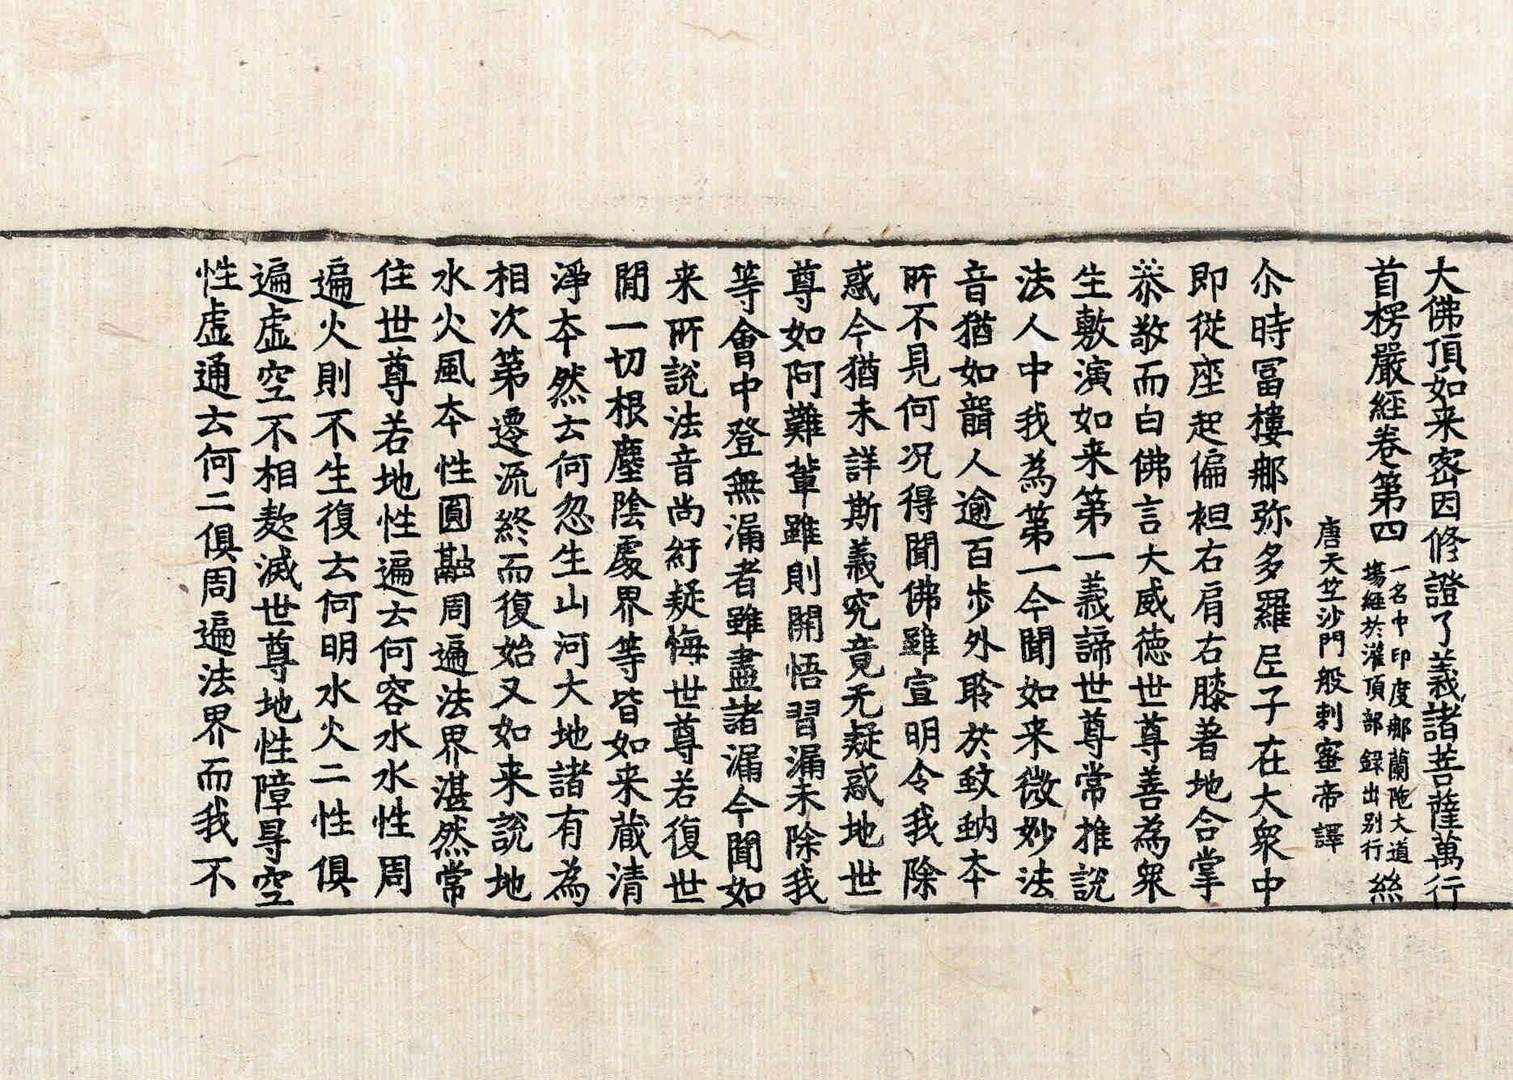 大佛頂如来密因修證了義諸菩薩萬行
首楞嚴經卷第四
一名中印度那蘭陀大道
場經於灌頂部録出别行
絲
唐天竺沙門般剌蜜帝譯
尒時冨樓那弥多羅尼子在大衆中
即從座起偏袒右肩右膝著地合掌
恭敬而白佛言大威德世尊善為衆
生敷演如来第一義諦世尊常推説
法人中我為第一今聞如来微妙法
音猶如聾人逾百歩外聆於蚊蚋本
所不見何况得聞佛雖宣明令我除
惑今猶未詳斯義究竟无疑惑地世
尊如阿難輩雖則開悟習漏未除我
等會中登無漏者雖盡諸漏今聞如
来所説法音尚紆疑悔世尊若復世
間一切根塵陰處界等皆如来藏清
淨本然云何忽生山河大地諸有為
相次第遷流終而復始又如来説地
水火風本性圓融周遍法界湛然常
住世尊若地性遍云何容水水性周
遍火則不生復云何明水火二性俱
遍虚空不相淩滅世尊地性障㝵空
性虚通云何二俱周遍法界而我不